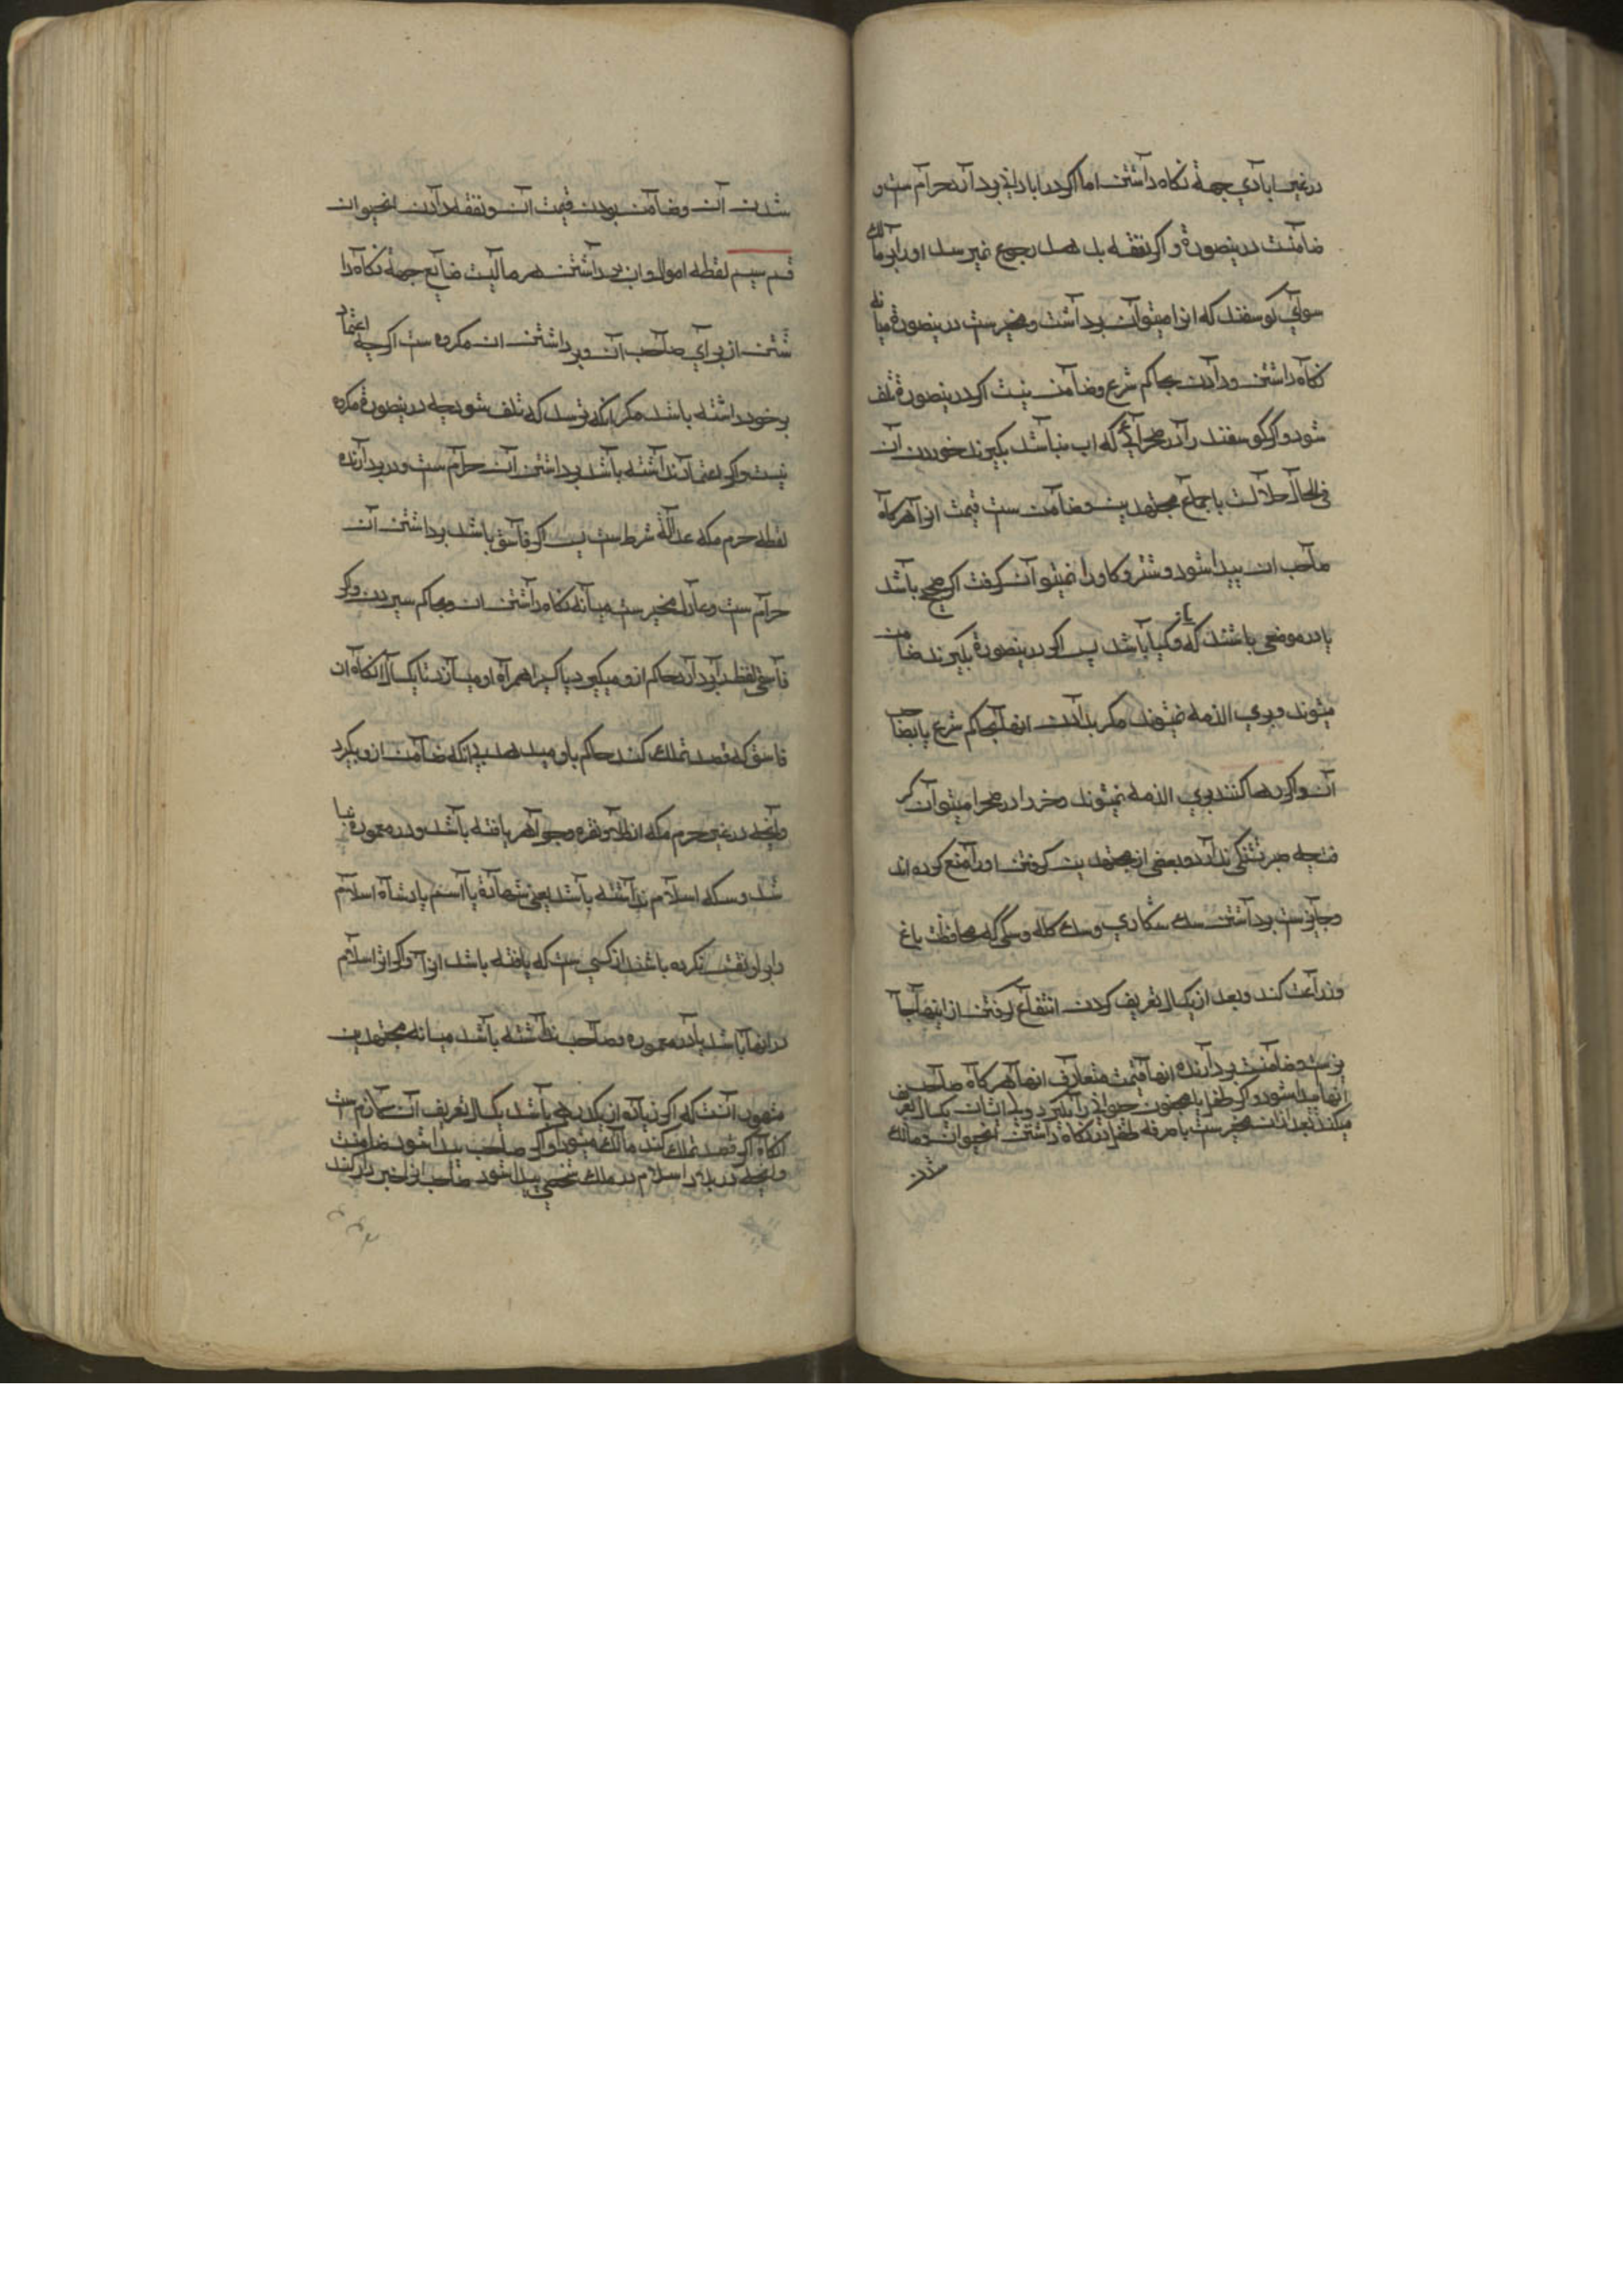 در غیر ابادي جهة نكاه داشتن اما اكر در ابادانی بردارد حرام ست و
ضامنست درینصورة و اكر نفقه بدهد رجوع نمیرسد اورا بر مالك
سوای كوسفند كه انرا میتوان برداشت و مخیرست درینصورة میانه
نكاه داشتن و دادن بحاكم شرع وضامن نیست اكر درینصورة تلف
شود و اكر كوسفند را در صحرائی كه اب نباشد بكیرند خوردن آن
فی الحال حلالست باجماع مجتهدین وضامن ست قیمت انرا هركاه
صاحب ان پیدا شود و شتر و كاو را نمیتوان كرفت اكر صحیح باشد
یا در موضعی باشند كه آب و كیا باشد پس اكر درینصورة بكیرند ضامن
میشوند و بري الذمه نمیشوند مكر بدادن انها بحاكم شرع یا بصاحب
آن و اكر رها كنند بري الذمه نمیشوند و خر را در صحرا میتوان كر
فت چه صبر تشنكی ندارد و بعضی از مجتهدین كرفتن اورا منع كرده اند
و جایزست برداشتن سك شكاري و سك كله و سكی كه محافظت باغ
و زراعت كند و بعد از یكسال تعریف كردن انتفاع كرفتن از اینها جا
یزست وضامنست بردارنده انها قیمت متعارف انها هركاه صاحب
انها پیدا شود و اكر طفل یا مجنون حیوانی را بكیرد ولی ایشان یكسال تعریف
میكند بعد ازان مخیرست با صرفه طفل در نكاه داشتن انحیوان و مالك
شدن
شدن آن وضامن بودن قیمت آن و نفقه دادن انحیوان
قسم سیم لقطه اموال و ان برداشتن هر مالیت ضایع جهة نكاه دا
شتن از برای صاحب آن و برداشتن ان مكروه ست اكرچه اعتماد
بر خود داشته باشد مكر انكه ترسد كه تلف شود چه درینصورة مكره
نیست و اكر اعتماد نداشته باشد برداشتن آن حرام ست و در بردارنده
لقطه حرم مكه عدالة شرط ست پس اكر فاسق باشد برداشتن آن
حرام ست و عادل مخیر ست میانه نكاه داشتن ان و بحاكم سپردن و اكر
فاسق لقطه بردارد حاكم ازو میكیرد یا كسی را همراه او میسازد تا یكسال انكاه ان
فاسق كه قصد تملك كند حاكم باو میدهد بی انكه ضامن ازو بكیرد
و انچه در غیر حرم مكه از طلا و نقره و جواهر یافته باشد و در معموره نبا
شد و سكه اسلام نداشته باشد یعنی شهادة یا اسم پادشاه اسلام
را برو نقش نكرده باشند از كسی ست كه یافته باشد انرا و اكر اثر اسلام
در انها باشد یا در معموره و صاحب نداشته باشد میانه مجتهدین
مشهور آنست كه اكر زیاده از یكدرهم باشد یكسال تعریف آن لازم ست
انكاه اكر قصد تملك كند مالك میشود و اكر صاحب پیدا شود ضامنست
و انچه در بلاد اسلام در ملك شخصی پیدا شود صاحب انرا خبر دار كند